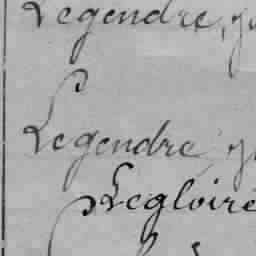 Legendre, 
Legendre,
Legloire